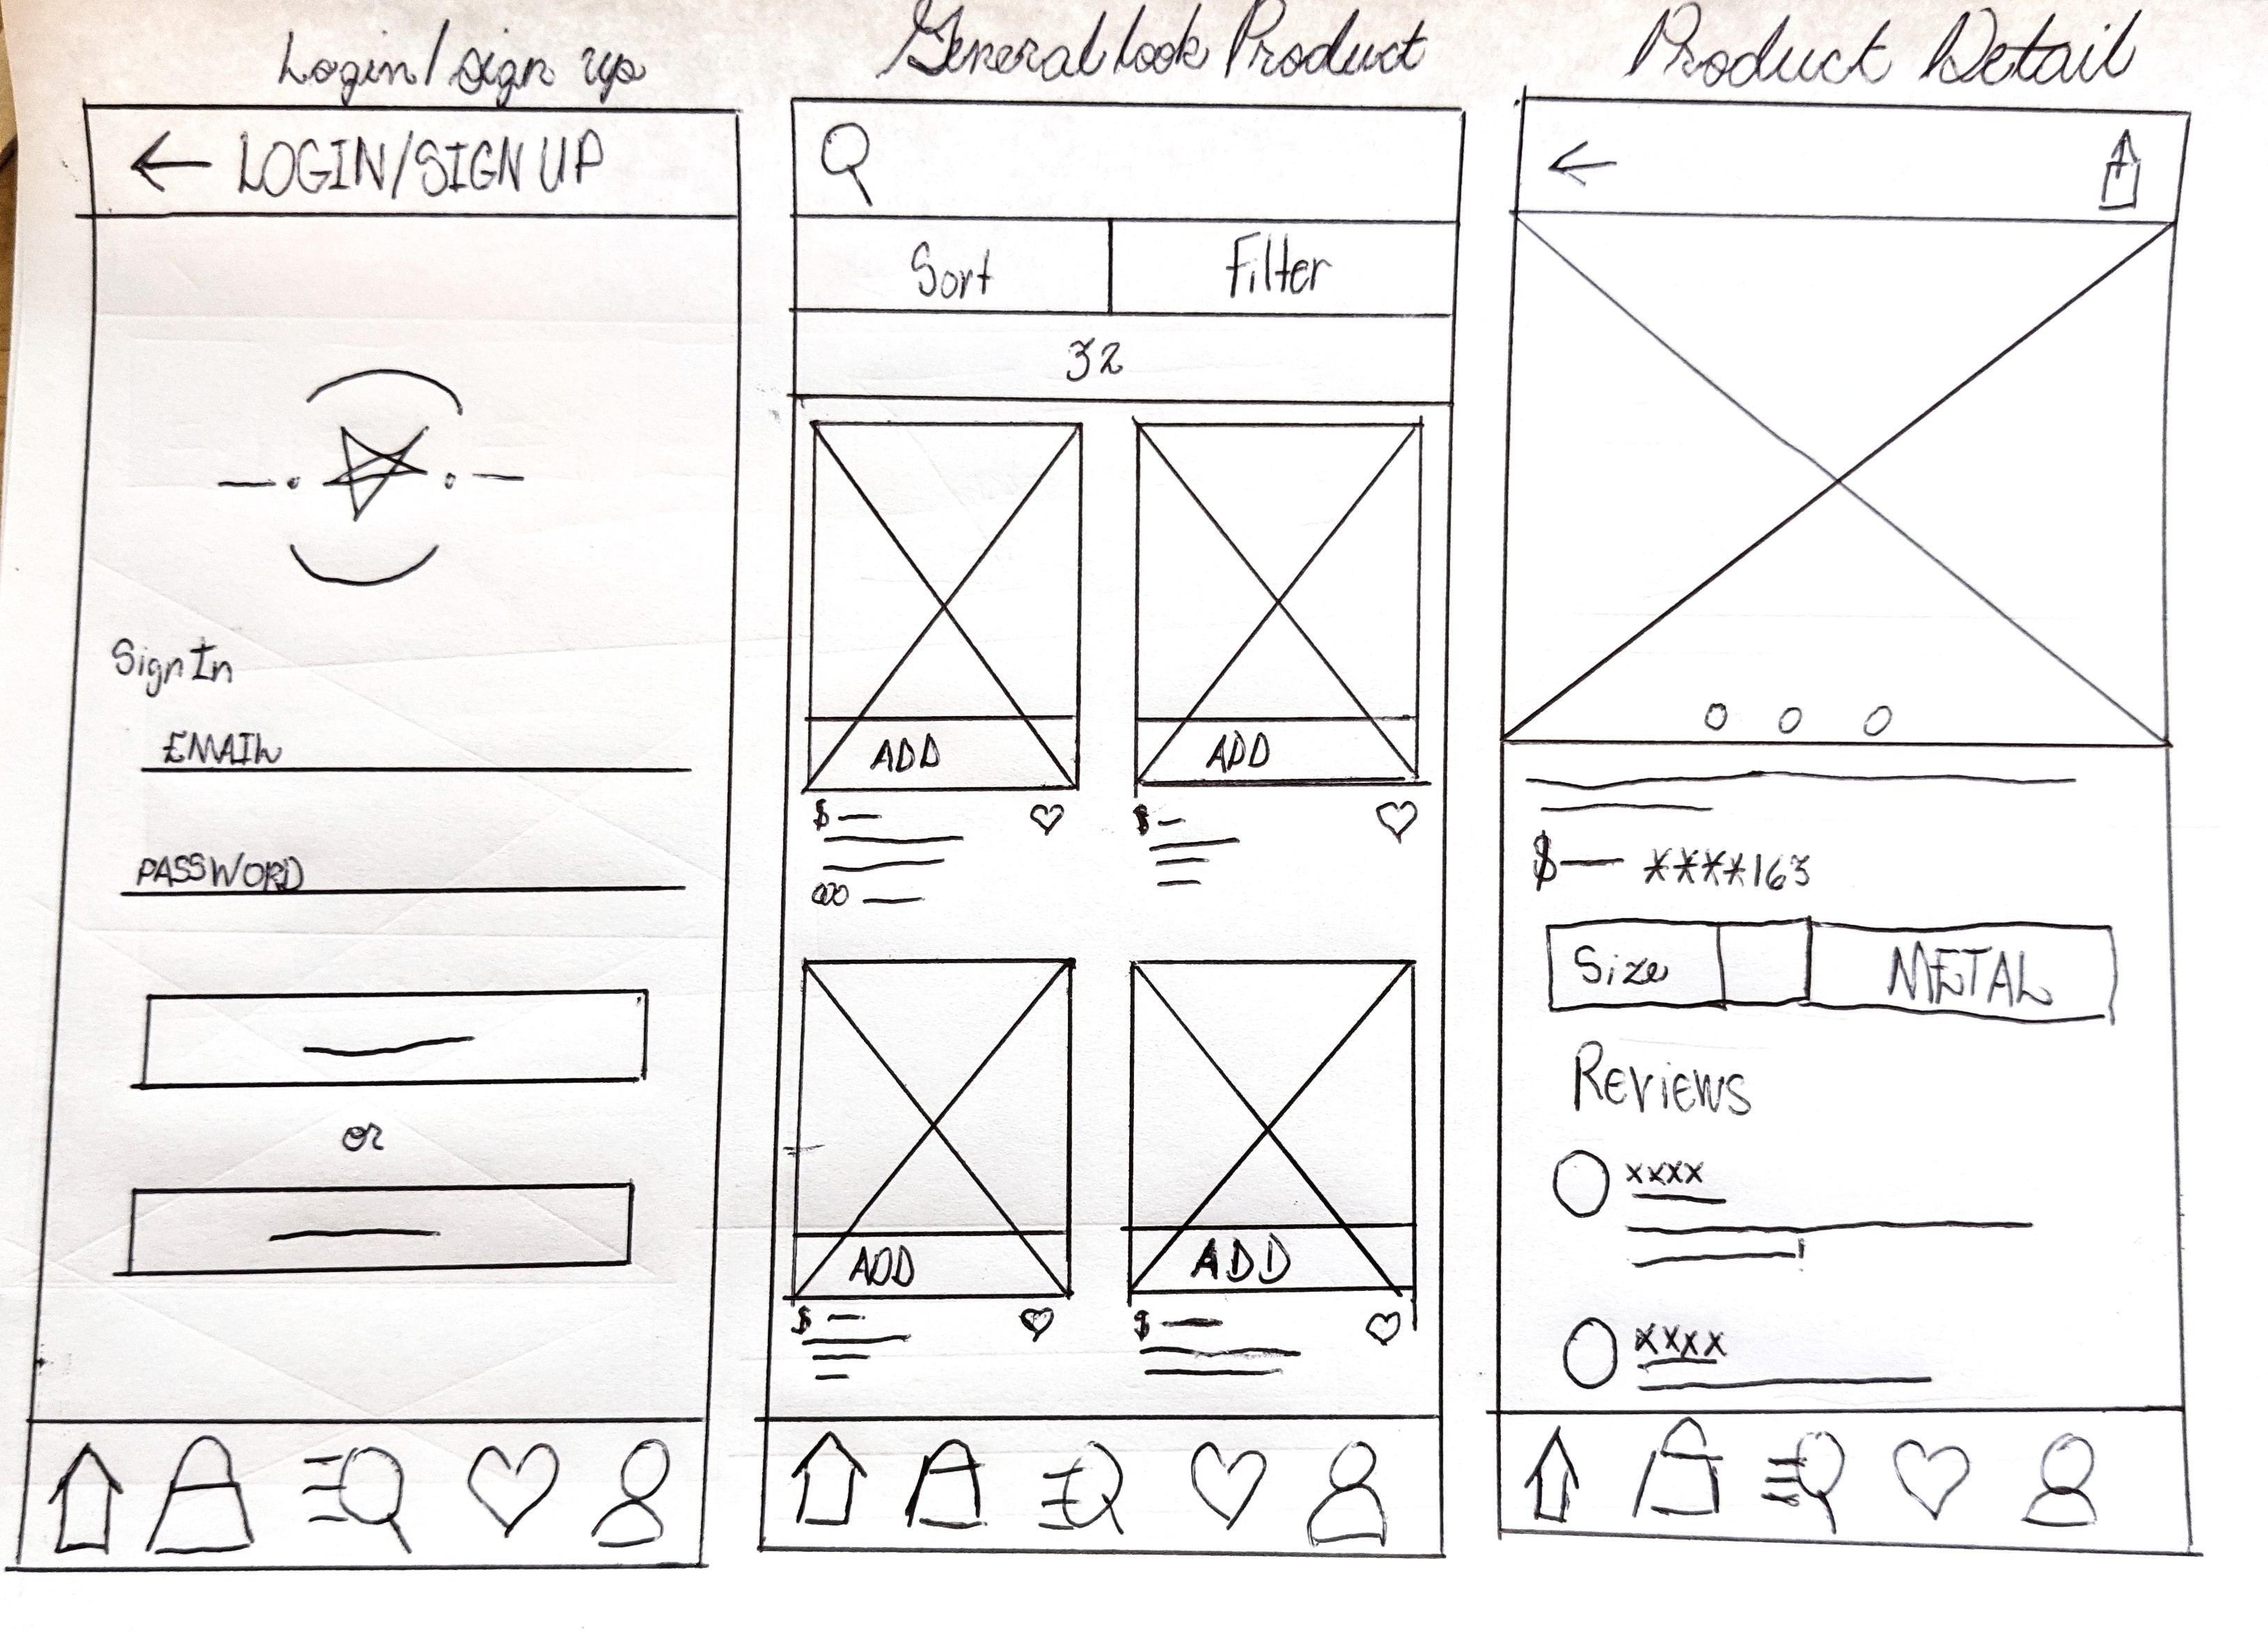 Login/sign up
LOGIN/SIGN UP
Sign In
EMAIL
PASSWORD
or
General look Product
Sort
Filter
32
ADD
ADD
$
$
ADD
ADD
$
$
Product Detail
$ ****163
Size
METAL
Reviews
xxxx
xxxx